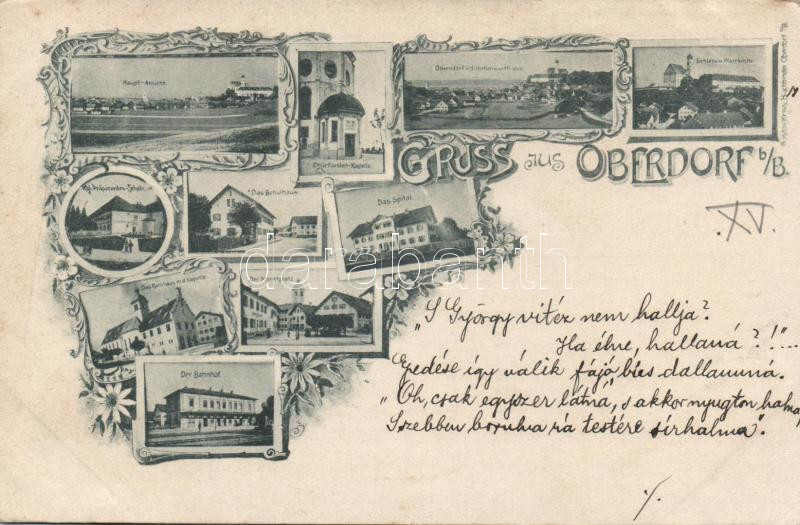 Haupt-Ansicht
Churfürsten-Kapelle
Oberndorf v.d. Hohenwarth aus
Schloss u. Pfarrkirche
GRUSS aus OBERDORF b/B.
Das Schulhaus
Das Spital
Das Rathhaus m.d. Kapelle
Der Marktplatz
Der Bahnhof
XV.
darabanth
„S György vitéz nem hallja?
Ha élne, hallaná?!"...
Epedése így válik fájó, bús dallammá.
„Oh, csak egyszer látná", s akkor nyugton halna,
Szebben borulna rá testére sírhalma".
./.